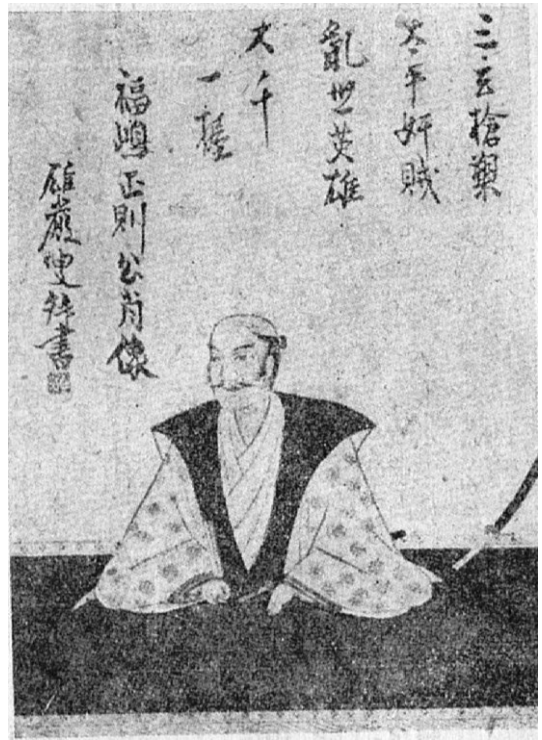 三玄槍
太平奸賊
亂世英雄
大千
一
福嶋正則公肖像
雄巖叟拜書